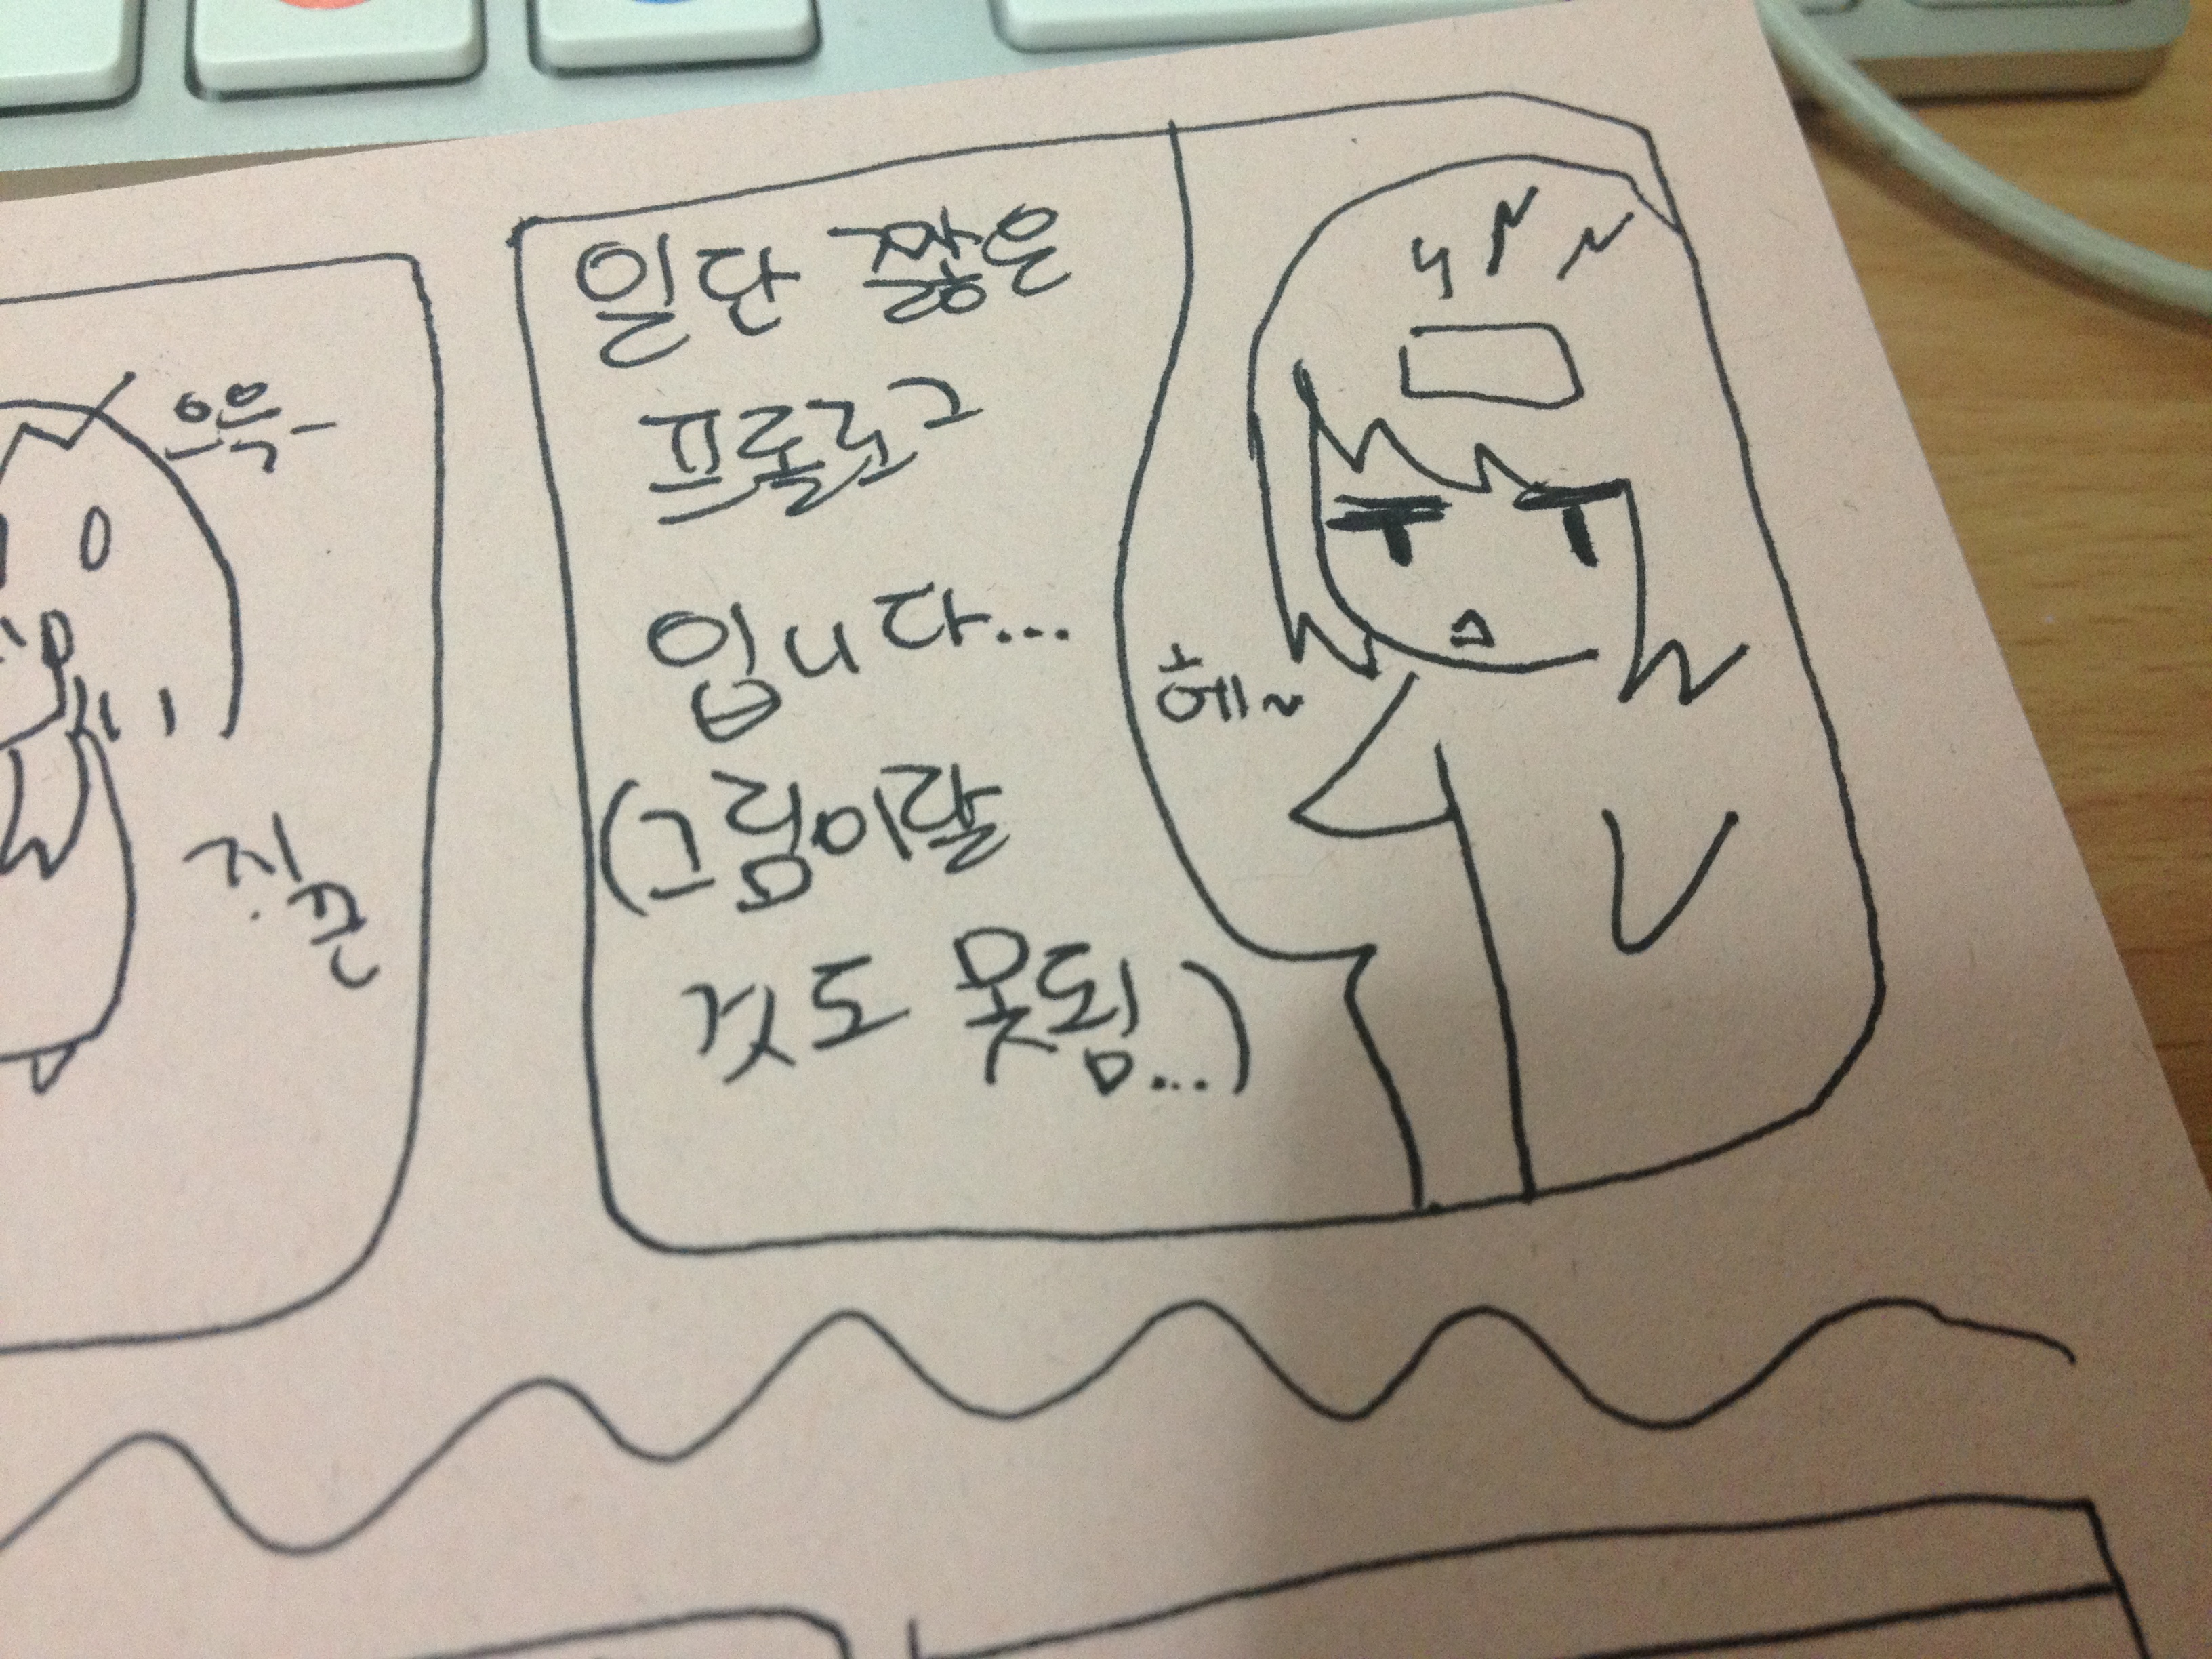 으윽-
지끈
일단 짧은
프롤로그
입니다...
(그림이랄
것도 못됨...)
헤~